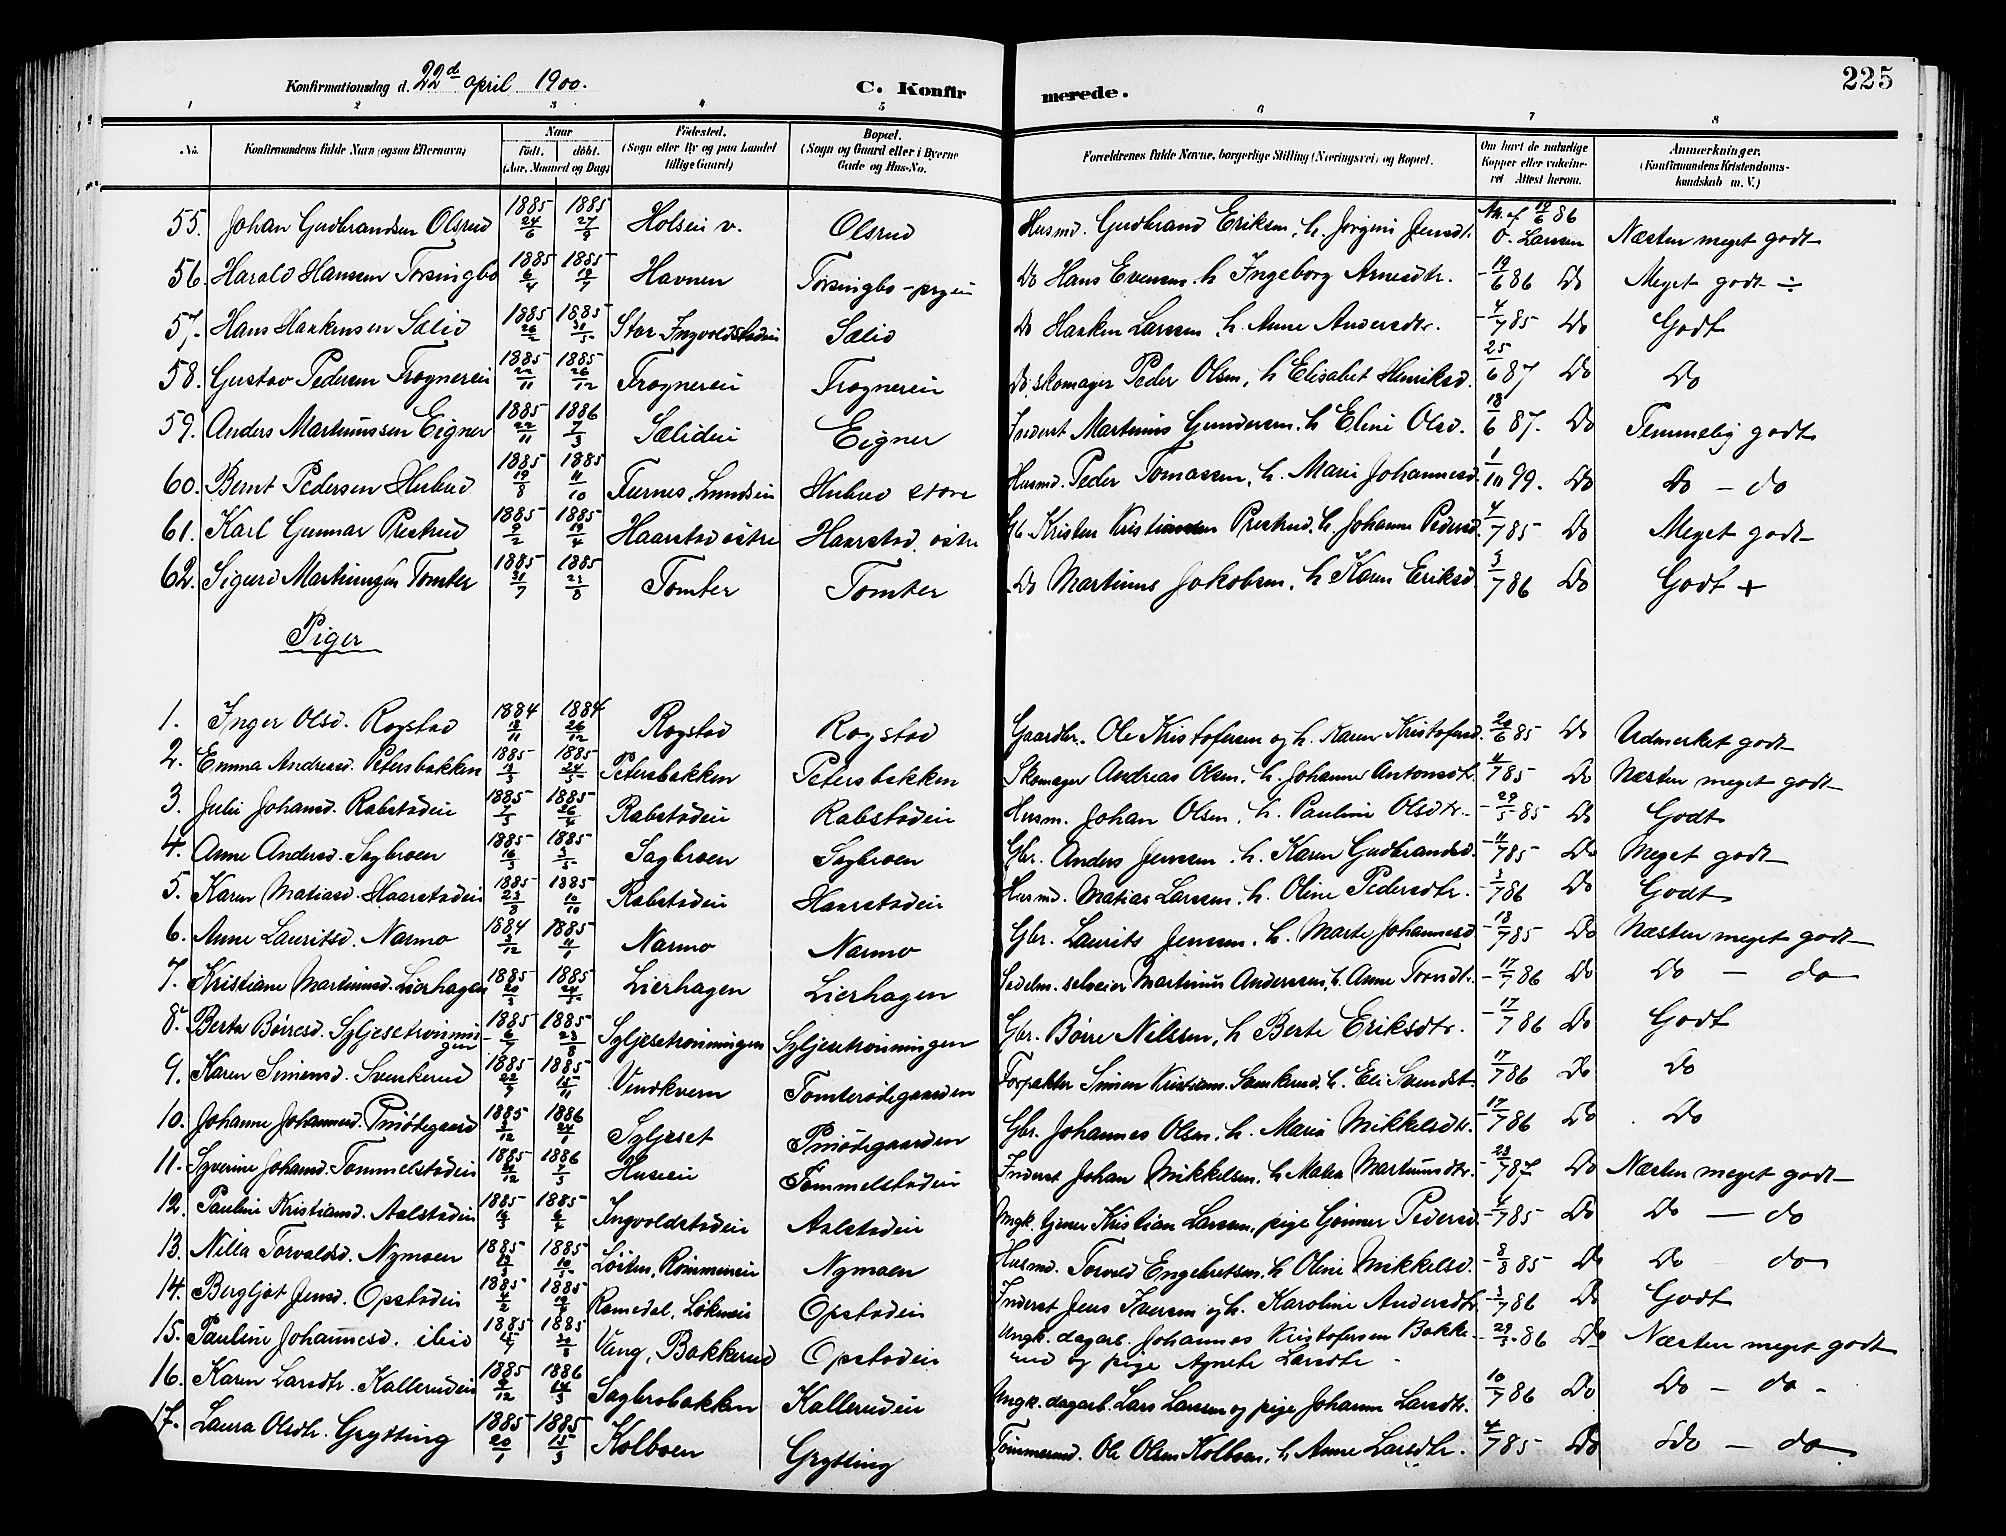 225
Konfirmationsdag d. 22de april 1900. C. Konfirmerede.
1 2 3 4 5 6 7 8
No. Konfirmandens fulde Navn (ogsaa Efternavn) Naar født. døbt. (Aar, Maaned og Dag) Fødested. (Sogn eller By og paa Landet tillige Gaard) Bopæl. (Sogn og Gaard eller i Byerne Gade og Hus-No. Forældrenes fulde Navne, borgerlige Stilling (Næringsvei) og Bopæl. Om havt de naturlige Kopper eller vakcineret Attest herom. Anmerkninger. (Konfirmandens Kristendomskundskab m. V.)
55. Johan Gudbrandsen Olsrud 1885 24/6 1885 27/9 Holsei v. Olsrud Husmd. Gudbrand Eriksen, h. Jørgine Jensdt. Att. af 19/6 86 O. Larsen Næsten meget godt
56. Harald Hansen Torsingbo 1885 6/4 1885 19/7 Havnen Torsingbo Do Hans Evensen, h. Ingeborg Arnesdtr. 19/6 86 Do Meget godt ÷
57. Hans Haakensen Sælid 1885 26/2 1885 31/5 Stor Ingvoldstadeie Sælid Do Haaken Larssen, h. Anne Andersdtr. 4/7 85 Do Godt
58. Gustav Pedersen Trognereie 1885 22/11 1885 26/12 Trognereie Trognereie Do skomager Peder Olsen, h Elisabet Henriksd. 25/6 87 Do Do
59. Anders Martinussen Eigner 1885 22/11 1886 7/3 Sælideie Eigner Inderst Martinus Gundersen, h. Eline Olsd. 18/6 87. Do Temmelig godt
60. Bernt Pedersen Hubud 1885 19/8 1885 11/10 Furnes, Lundseie Hubud store Husmd. Peder Tomassen, h. Marie Johannesd. 1/10 99. Do Do - do
61. Karl Gunnar Prestrud 1885 9/2 1885 19/4 Haarstad østre Haarstad østre Gb. Kristen Kristiansen Prestrud, h. Johanne Pedersd. 4/7 85 Do Meget godt
62. Sigurd Martinussen Tomter 1885 31/7 1885 23/8 Tomter Tomter Do Martinus Jakobsen, h Karen Eriksd 3/7 86 Do Godt +
Piger
1. Inger Olsd. Rogstad 1884 13/11 1884 26/12 Rogstad Rogstad Gaardbr. Ole Kristofersen og h. Karen Kristofersd. 20/6 85 Do Udmerket godt
2. Emma Andreasd. Petersbakken 1885 13/3 1885 24/5 Petersbakken Petersbakken Skomager Andreas Olsen, h. Johanne Antonsdt. 4/7 85 Do Næsten meget godt
3. Julie Johansd. Rabstadeie 1885 7/3 1885 26/4 Rabstadeie Rabstadeie Husm. Johan Olsen, h. Pauline Olsdtr. 29/5 85 Do Godt
4. Anne Andersd. Sagbroen 1885 16/3 1885 3/5 Sagbroen Sagbroen Gbr. Anders Jensen, h. Karen Gudbrandsd. 11/7 85 Do Meget godt
5. Karen Matiasd. Haarstadeie 1885 23/8 1885 10/10 Rabstadeie Haarstadeie Husmd. Matias Larssen, h. Oline Pedersdtr. 3/7 86 Do Godt
6. Anne Lauritsd. Narmo 1884 3/12 1885 11/1 Narmo Narmo Gbr. Laurits Jenssen, h. Marte Johannesd 18/7 85 Do Næsten meget godt
7. Kristiane Martinusd. Lierhagen 1885 20/3 1885 24/5 Lierhagen Lierhagen Sedelm. selveier Martinus Anderssen, h. Anne Trondt. 17/7 86 Do Do - do
8. Berte Børresd. Syljesetrønningen 1885 6/7 1885 23/8 Syljesetrønningen Syljesetrønningen Gbr. Børre Nilssen, h Berte Eriksdtr. 17/7 86 Do Godt
9. Karen Simensd. Svenkerud 1885 22/9 1885 15/11 Vindkvern Tomterødegaarden Forpakter Simen Kristians. Svenkerud, h. Eli Svendst. 17/7 86 Do Do
10. Johanne Johannesd. Pmødegaard 1885 3/12 1886 24/1 Syljeset Pmødegaarden Gbr. Johannes Olsen, h. Marie Mikkelsdtr. 17/7 86 Do Do
11. Syverine Johansd. Tommelstadeie 1885 31/12 1886 2/5 Huseeie Tommelstadeie Inderst Johan Mikkelsen, h Maren Martinusdtr. 23/7 87 Do Næsten meget godt
12. Pauline Kristiansd. Aalstadeie 1885 16/3 1885 6/4 Ingvoldstadeie Aalstadeie Ungk. tjener Kristian Larssen, pige Gunner Pedersd 4/7 85 Do Do - do
13. Nilla Torvaldsd. Nymoen 1885 13/3 1885 10/5 Løiten, Rømmeneie Nymoen Husmd. Torvald Engebretsen, h Oline Mikkelsd. 8/8 85 Do Do - do
14. Bergljot Jensd. Opstadeie 1885 4/2 1885 19/4 Romedal, Løkeneie Opstadeie Inderst Jens Iversen og h. Karoline Andersdtr 3/7 86 Do Godt
15. Pauline Johannesd. ibid 1885 15/7 1885 30/8 Vang, Bakkerud Opstadeie Ungk. dagarb. Johannes Kristofersen Bakke- 29/5 86 Do Næsten meget godt
rud og pige Agnete Larsdtr
16. Karen Larsdtr. Kallerudeie 1885 9/12 1886 14/3 Sagbrobakken Kallerudeie Ungk. dagarb. Lars Larssen og pige Johanne Larsdtr. 10/7 86 Do Do - do -
17. Laura Olsdtr. Grytting 1885 20/1 1885 15/3 Kolboen Grytting Tømmermd. Ole Olsen Kolboen, h Anne Larsdtr. 4/7 85 Do Do - do